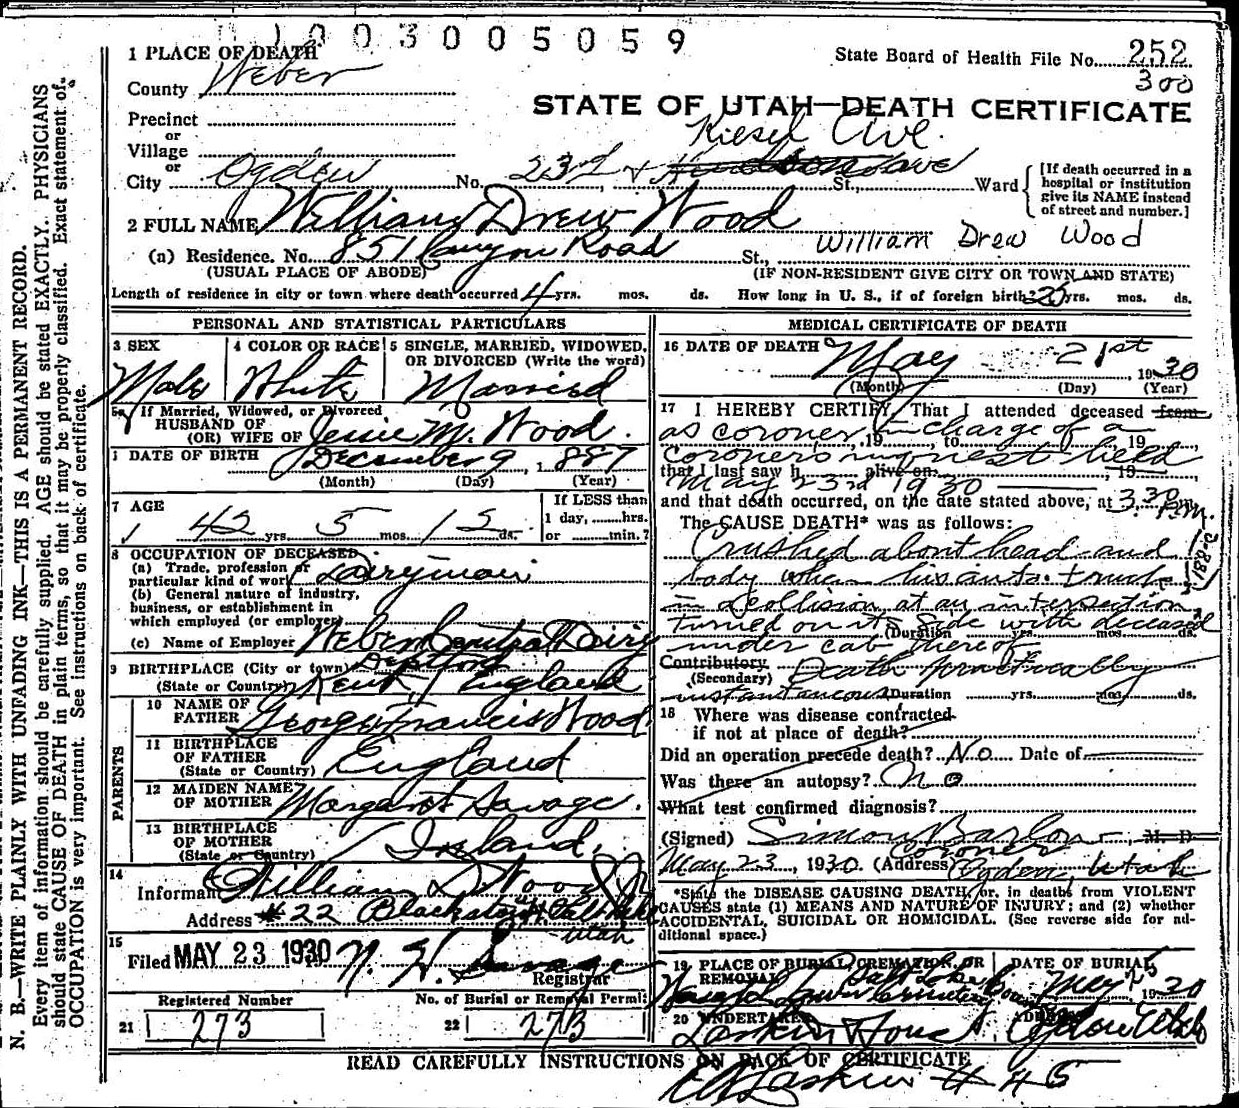 1003005059
1 PLACE OF DEATH
State Board of Health File No. 252
300
County Weber
STATE OF UTAH—DEATH CERTIFICATE
Precinct
or
Village
or
Kiesel Ave.
City Ogden No. 23rd & Hudson ave St., Ward
[If death occurred in a hospital or institution give its NAME instead of street and number.]
2 FULL NAME William Drew Wood
William Drew Wood
(a) Residence. No. 851 Canyon Road St.,
(USUAL PLACE OF ABODE) (IF NON-RESIDENT GIVE CITY OR TOWN AND STATE)
Length of residence in city or town where death occurred 4 yrs. mos. ds. How long in U. S., if of foreign birth? 25 yrs. mos. ds.
PERSONAL AND STATISTICAL PARTICULARS
3 SEX
Male
4 COLOR OR RACE
White
5 SINGLE, MARRIED, WIDOWED, OR DIVORCED (Write the word)
Married
5a If Married, Widowed, or Divorced
HUSBAND OF
(OR) WIFE OF Jessie M. Wood.
DATE OF BIRTH December 9, 1887
(Month) (Day) (Year)
7 AGE
42 yrs. 5 mos. 12 ds.
If LESS than
1 day, hrs.
or min.?
8 OCCUPATION OF DECEASED
(a) Trade, profession or
particular kind of work Dairyman
(b) General nature of industry,
business, or establishment in
which employed (or employer)
(c) Name of Employer Weber Central Dairy
9 BIRTHPLACE (City or town) Deptford
(State or Country) Kent, England
PARENTS
10 NAME OF
FATHER George Francis Wood
11 BIRTHPLACE
OF FATHER
(State or Country) England
12 MAIDEN NAME
OF MOTHER Margaret Savage.
13 BIRTHPLACE
OF MOTHER
(State or Country) Ireland.
14
Informant William D Wood Jr
Address #22 Blackstone Apt Salt Lake
Utah
15
Filed MAY 23 1930 N. H. Savage
Registrar
Registered Number No. of Burial or Removal Permit
21 273 22 273
MEDICAL CERTIFICATE OF DEATH
16 DATE OF DEATH May 21st 1930
(Month) (Day) (Year)
17 I HEREBY CERTIFY, That I attended deceased from
as coroner, 19 in charge of a
to 19
coroners inquest held
that I last saw h alive on 19
May 23rd 1930
and that death occurred, on the date stated above, at 3.30 P.m.
The CAUSE DEATH* was as follows:
Crushed about head and
body when his auto. truck
in a collision at an intersection,
turned on its side with deceased
(Duration yrs. mos. ds.
under cab thereof
Contributory Death practically
(Secondary)
instantaneous Duration yrs. mos. ds.
18 Where was disease contracted
if not at place of death?
Did an operation precede death? No Date of
Was there an autopsy? No
What test confirmed diagnosis?
(Signed) Simon Barlow, M. D.
Coroner
May 23, 1930. (Address) Ogden, Utah
*State the DISEASE CAUSING DEATH, or, in deaths from VIOLENT
CAUSES state (1) MEANS AND NATURE OF INJURY; and (2) whether
ACCIDENTAL, SUICIDAL OR HOMICIDAL. (See reverse side for additional space.)
19 PLACE OF BURIAL, CREMATION, OR
REMOVAL Salt Lake
Wasatch Lawn Cemetery
DATE OF BURIAL
May 25 1930
20 UNDERTAKER
Larkin
ADDRESS
Ogden Utah
READ CAREFULLY INSTRUCTIONS ON BACK OF CERTIFICATE
Larkin # 45
N. B.—WRITE PLAINLY WITH UNFADING INK—THIS IS A PERMANENT RECORD.
Every item of information should be carefully supplied. AGE should be stated EXACTLY. PHYSICIANS
should state CAUSE OF DEATH in plain terms, so that it may be properly classified. Exact statement of
OCCUPATION is very important. See instructions on back of certificate.